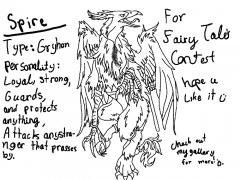 Spire
Type: Gryhon
Personality:
Loyal, strong,
Guards,
and protects
anything,
Attacks any stra-
nger that presses
by.
For
Fairy Tale
Contest
hope u
Like it
check out
my gallery
for more